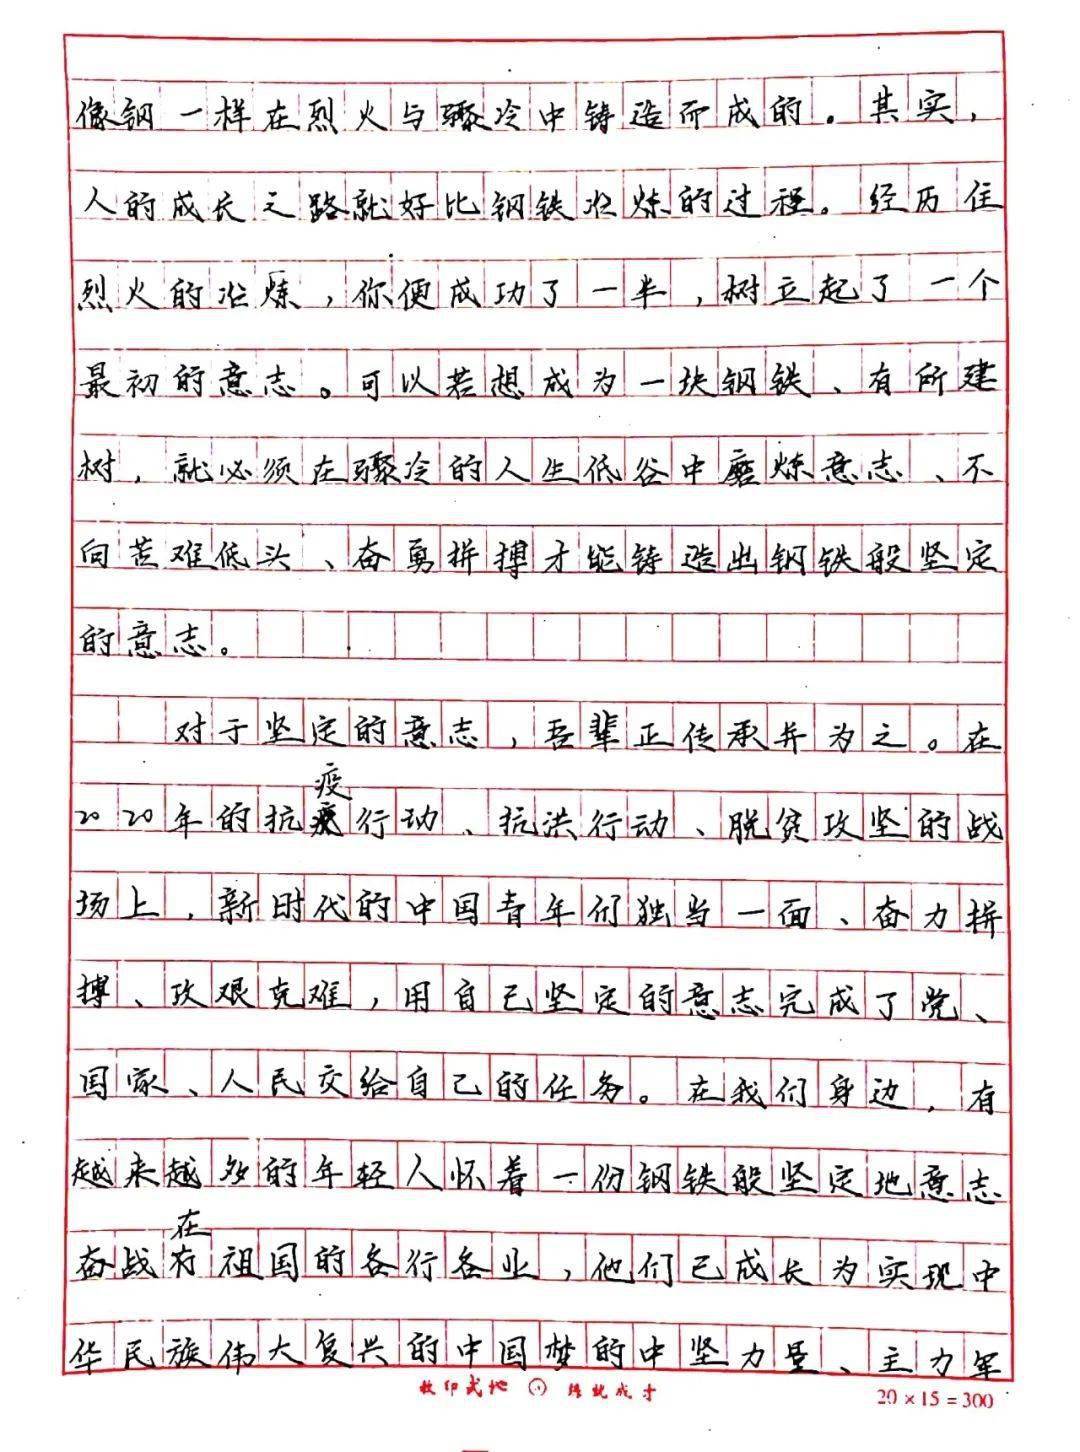 像钢一样在烈火与骤冷中铸造而成的。其实，
人的成长之路就好比钢铁冶炼的过程。经历住
烈火的冶炼，你便成功了一半，树立起了一个
最初的意志。可以若想成为一块钢铁、有所建
树，就必须在骤冷的人生低谷中磨炼意志、不
向苦难低头、奋勇拼搏才能铸造出钢铁般坚定
的意志。
对于坚定的意志，吾辈正传承并为之。在
2020年的抗疫行动、抗洪行动、脱贫攻坚的战
场上，新时代的中国青年们独当一面、奋力拼
搏、攻艰克难，用自己坚定的意志完成了党、
国家、人民交给自己的任务。在我们身边，有
越来越多的年轻人怀着一份钢铁般坚定地意志
奋战在祖国的各行各业，他们已成长为实现中
华民族伟大复兴的中国梦的中坚力量、主力军
20×15=300